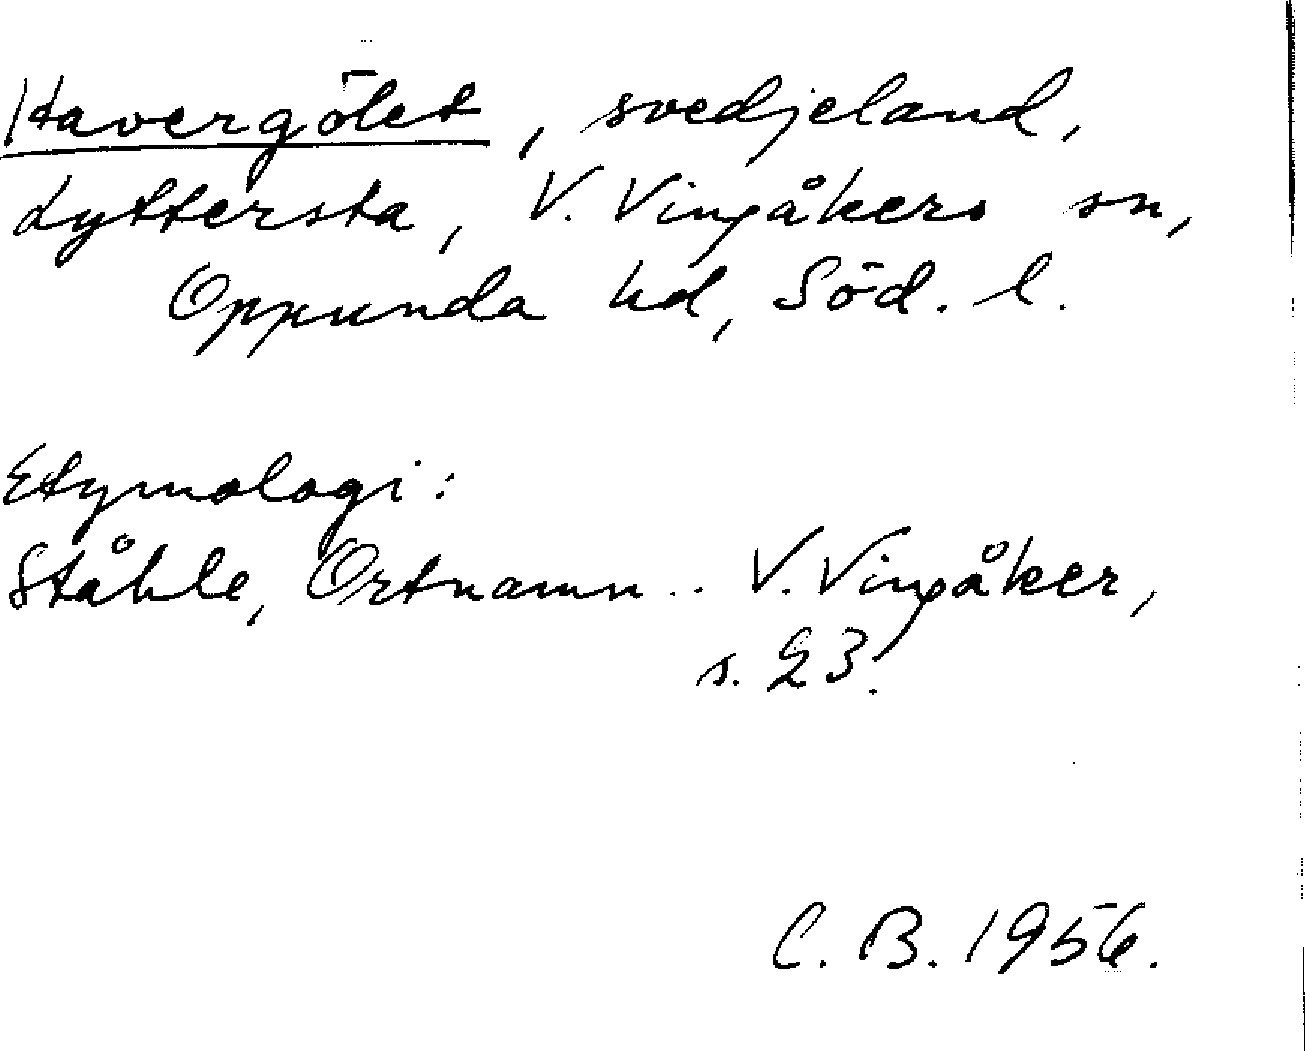 Havergölet, svedjeland,
Lyttersta, V. Vingåkers sn,
Oppunda hd, Söd. l.
Etymologi:
Ståhle, Ortnamn.. V. Vingåker,
s. 23.
C. B. 1956.